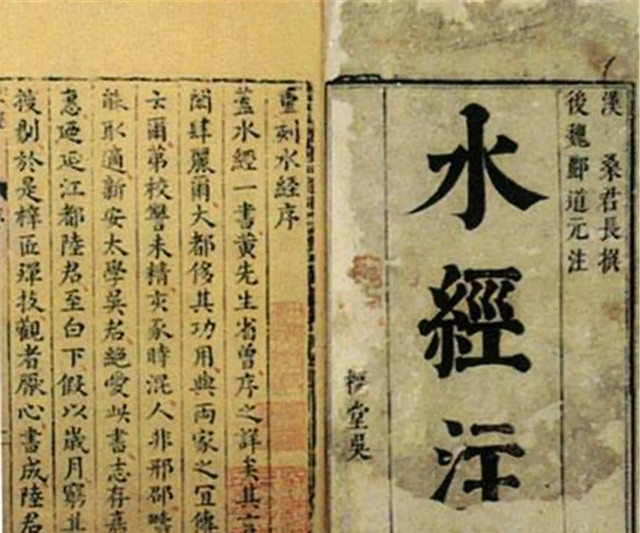 漢 桑君長撰
後魏酈道元注
水經注
堂吳
重刻水經序
蓋水經一書黃先生省曾序之詳矣其言
閎肆麗爾大都侈其功用與兩家之宜傳
云爾第校讐未精亥豕時混人非邢邵疇
能取適新安太學吳君絕愛此書志存嘉
惠迺延江都陸君至白下假以歲月窮其
剞於是梓匠殫技觀者厭心書成陸君